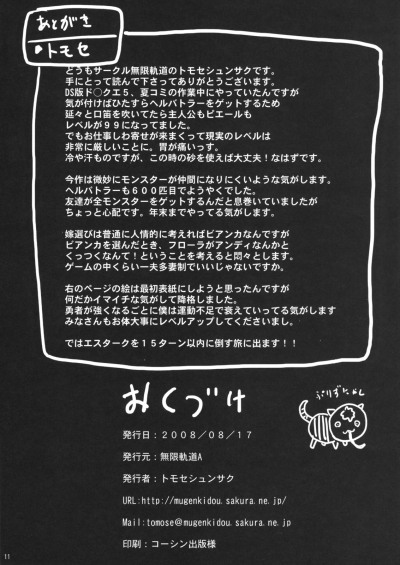 あとがき
•トモセ
どうもサークル無限軌道のトモセシュンサクです。
手にとって読んで下さってありがとうございます。
DS版ド○クエ5、夏コミの作業中にやっていたんですが
気が付けばひたすらヘルバトラーをゲットするため
延々と口笛を吹いてたら主人公もピエールも
レベルが99になってました。
でもお仕事しわ寄せが来まくって現実のレベルは
非常に厳しいことに。胃が痛いっす。
冷や汗ものですが、この時の砂を使えば大丈夫！なはずです。
今作は微妙にモンスターが仲間になりにくいような気がします。
ヘルバトラーも600匹目でようやくでした。
友達が全モンスターをゲットするんだと息巻いていましたが
ちょっと心配です。年末までやってる気がします。
嫁選びは普通に人情的に考えればビアンカなんですが
ビアンカを選んだとき、フローラがアンディなんかと
くっつくなんて！ということを考えると悶々とします。
ゲームの中くらい一夫多妻制でいいじゃないですか。
右のページの絵は最初表紙にしようと思ったんですが
何だかイマイチな気がして降格しました。
勇者が強くなるごとに僕は運動不足で衰えていってる気がします
みなさんもお体大事にレベルアップしてくださいまし。
ではエスタークを15ターン以内に倒す旅に出ます！！
おくづけ
ぷりずにゃん
発行日：2008／08／17
発行元：無限軌道A
発行者：トモセシュンサク
URL:http://mugenkidou.sakura.ne.jp/
Mail:tomose@mugenkidou.sakura.ne.jp
印刷：コーシン出版様
11